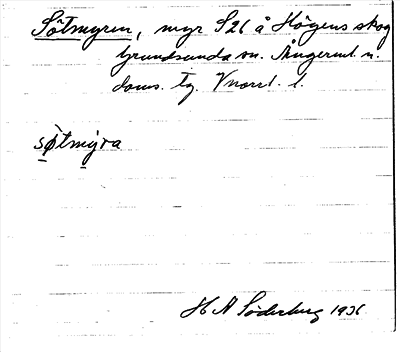 Sötmyren, myr S26 å Högens skog
Grundsunda sn. Ångerml. n.
doms. tg. Vnorrl. l.
sötmýra
H A Söderberg 1936